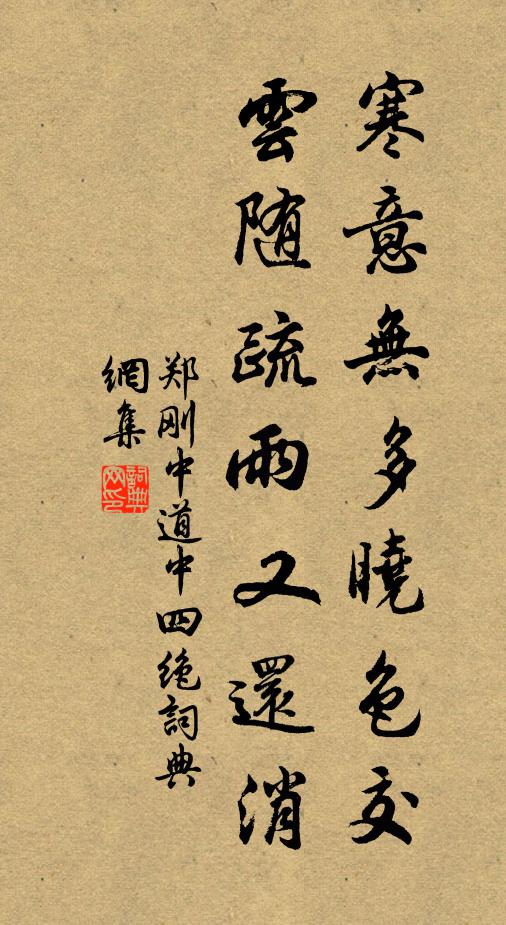 寒意無多曉色交
雲随疏雨又還消
郑刚中道中四绝詞典
網集
詞典
网印